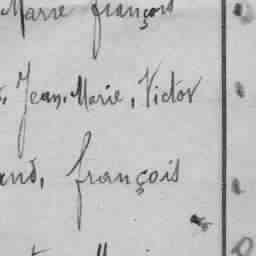 Marie françois
Jean-Marie, Victor
and, françois